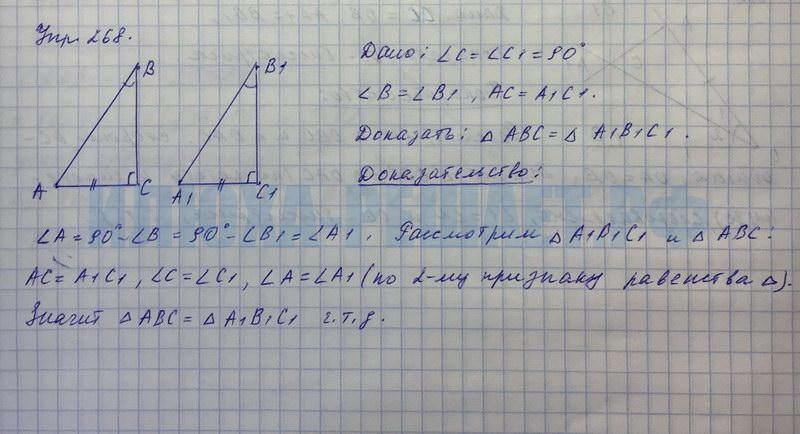 Упр. 268.
Дано: ∠C = ∠C1 = 90°
∠B = ∠B1, AC = A1C1.
Доказать: △ ABC = △ A1B1C1.
Доказательство:
B
B1
A
C
A1
C1
∠A = 90° - ∠B = 90° - ∠B1 = ∠A1. Рассмотрим △ A1B1C1 и △ ABC:
AC = A1C1, ∠C = ∠C1, ∠A = ∠A1 (по 2-му признаку равенства △).
Значит △ ABC = △ A1B1C1 ч.т.д.